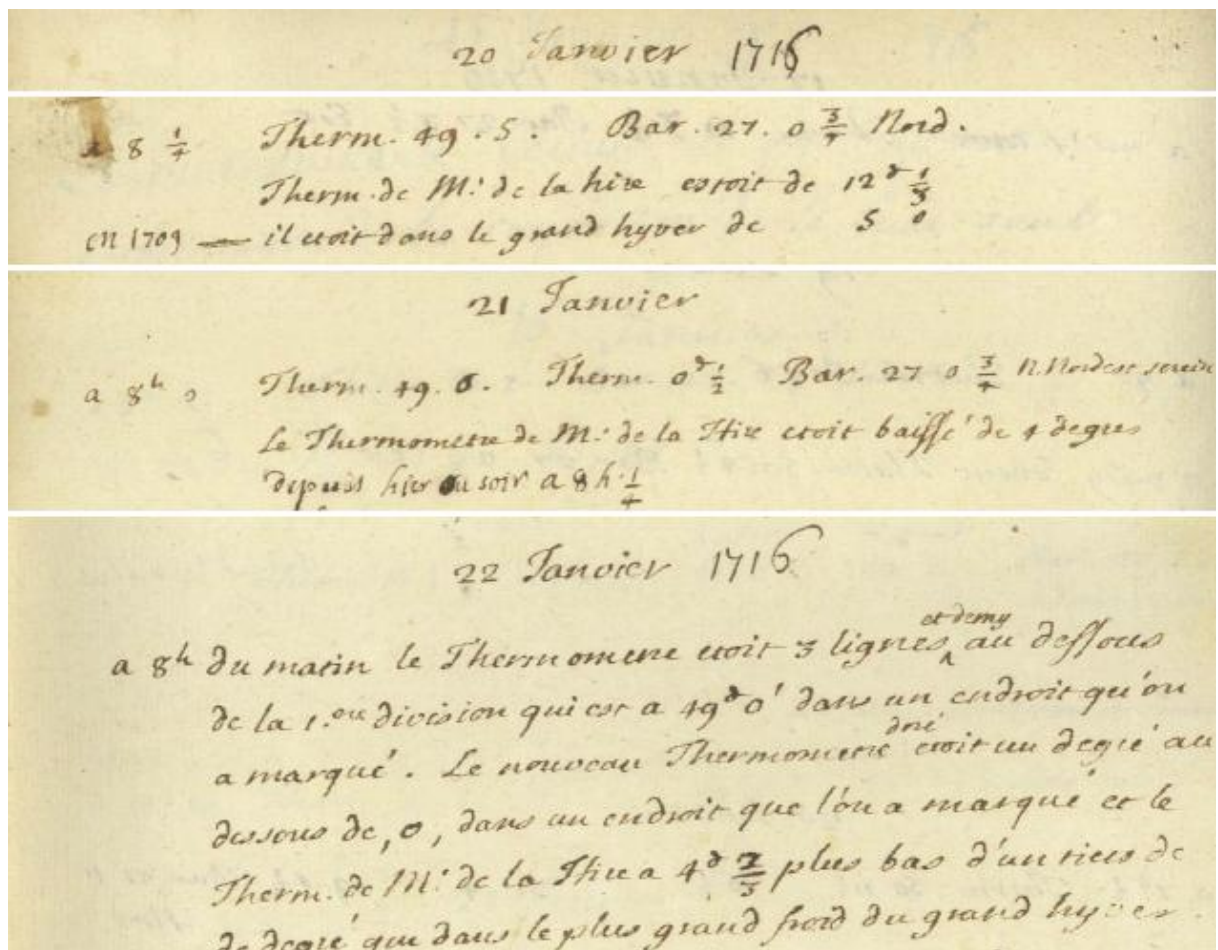 20 Janvier 1716
a 8 1/4 Therm. 49. 5. Bar. 27. 0 3/4 Nord.
Therm. de Mr. de la hire estoit de 12d 1/3
en 1709 — il etoit dans le grand hyver de 5 0
21 Janvier
a 8h 0 Therm. 49. 0. Therm. 0d 1/2 Bar. 27 0 3/4 N. Nordest serein
Le Thermometre de Mr. de la Hire etoit baissé de 4 degres
depuis hier au soir a 8h. 1/4
22 Janvier 1716
et demy
a 8h du matin le Thermometre etoit 3 lignes ^ au dessous
de la 1.ere division qui est a 49d 0' dans un endroit qu'on
a marqué. Le nouveau Thermometre etoit un degré au
dessous de, 0, dans un endroit que l'on a marqué et le
Therm. de Mr. de la Hire a 4d 2/3 plus bas d'un tiers de
de degré que dans le plus grand froid du grand hyver.